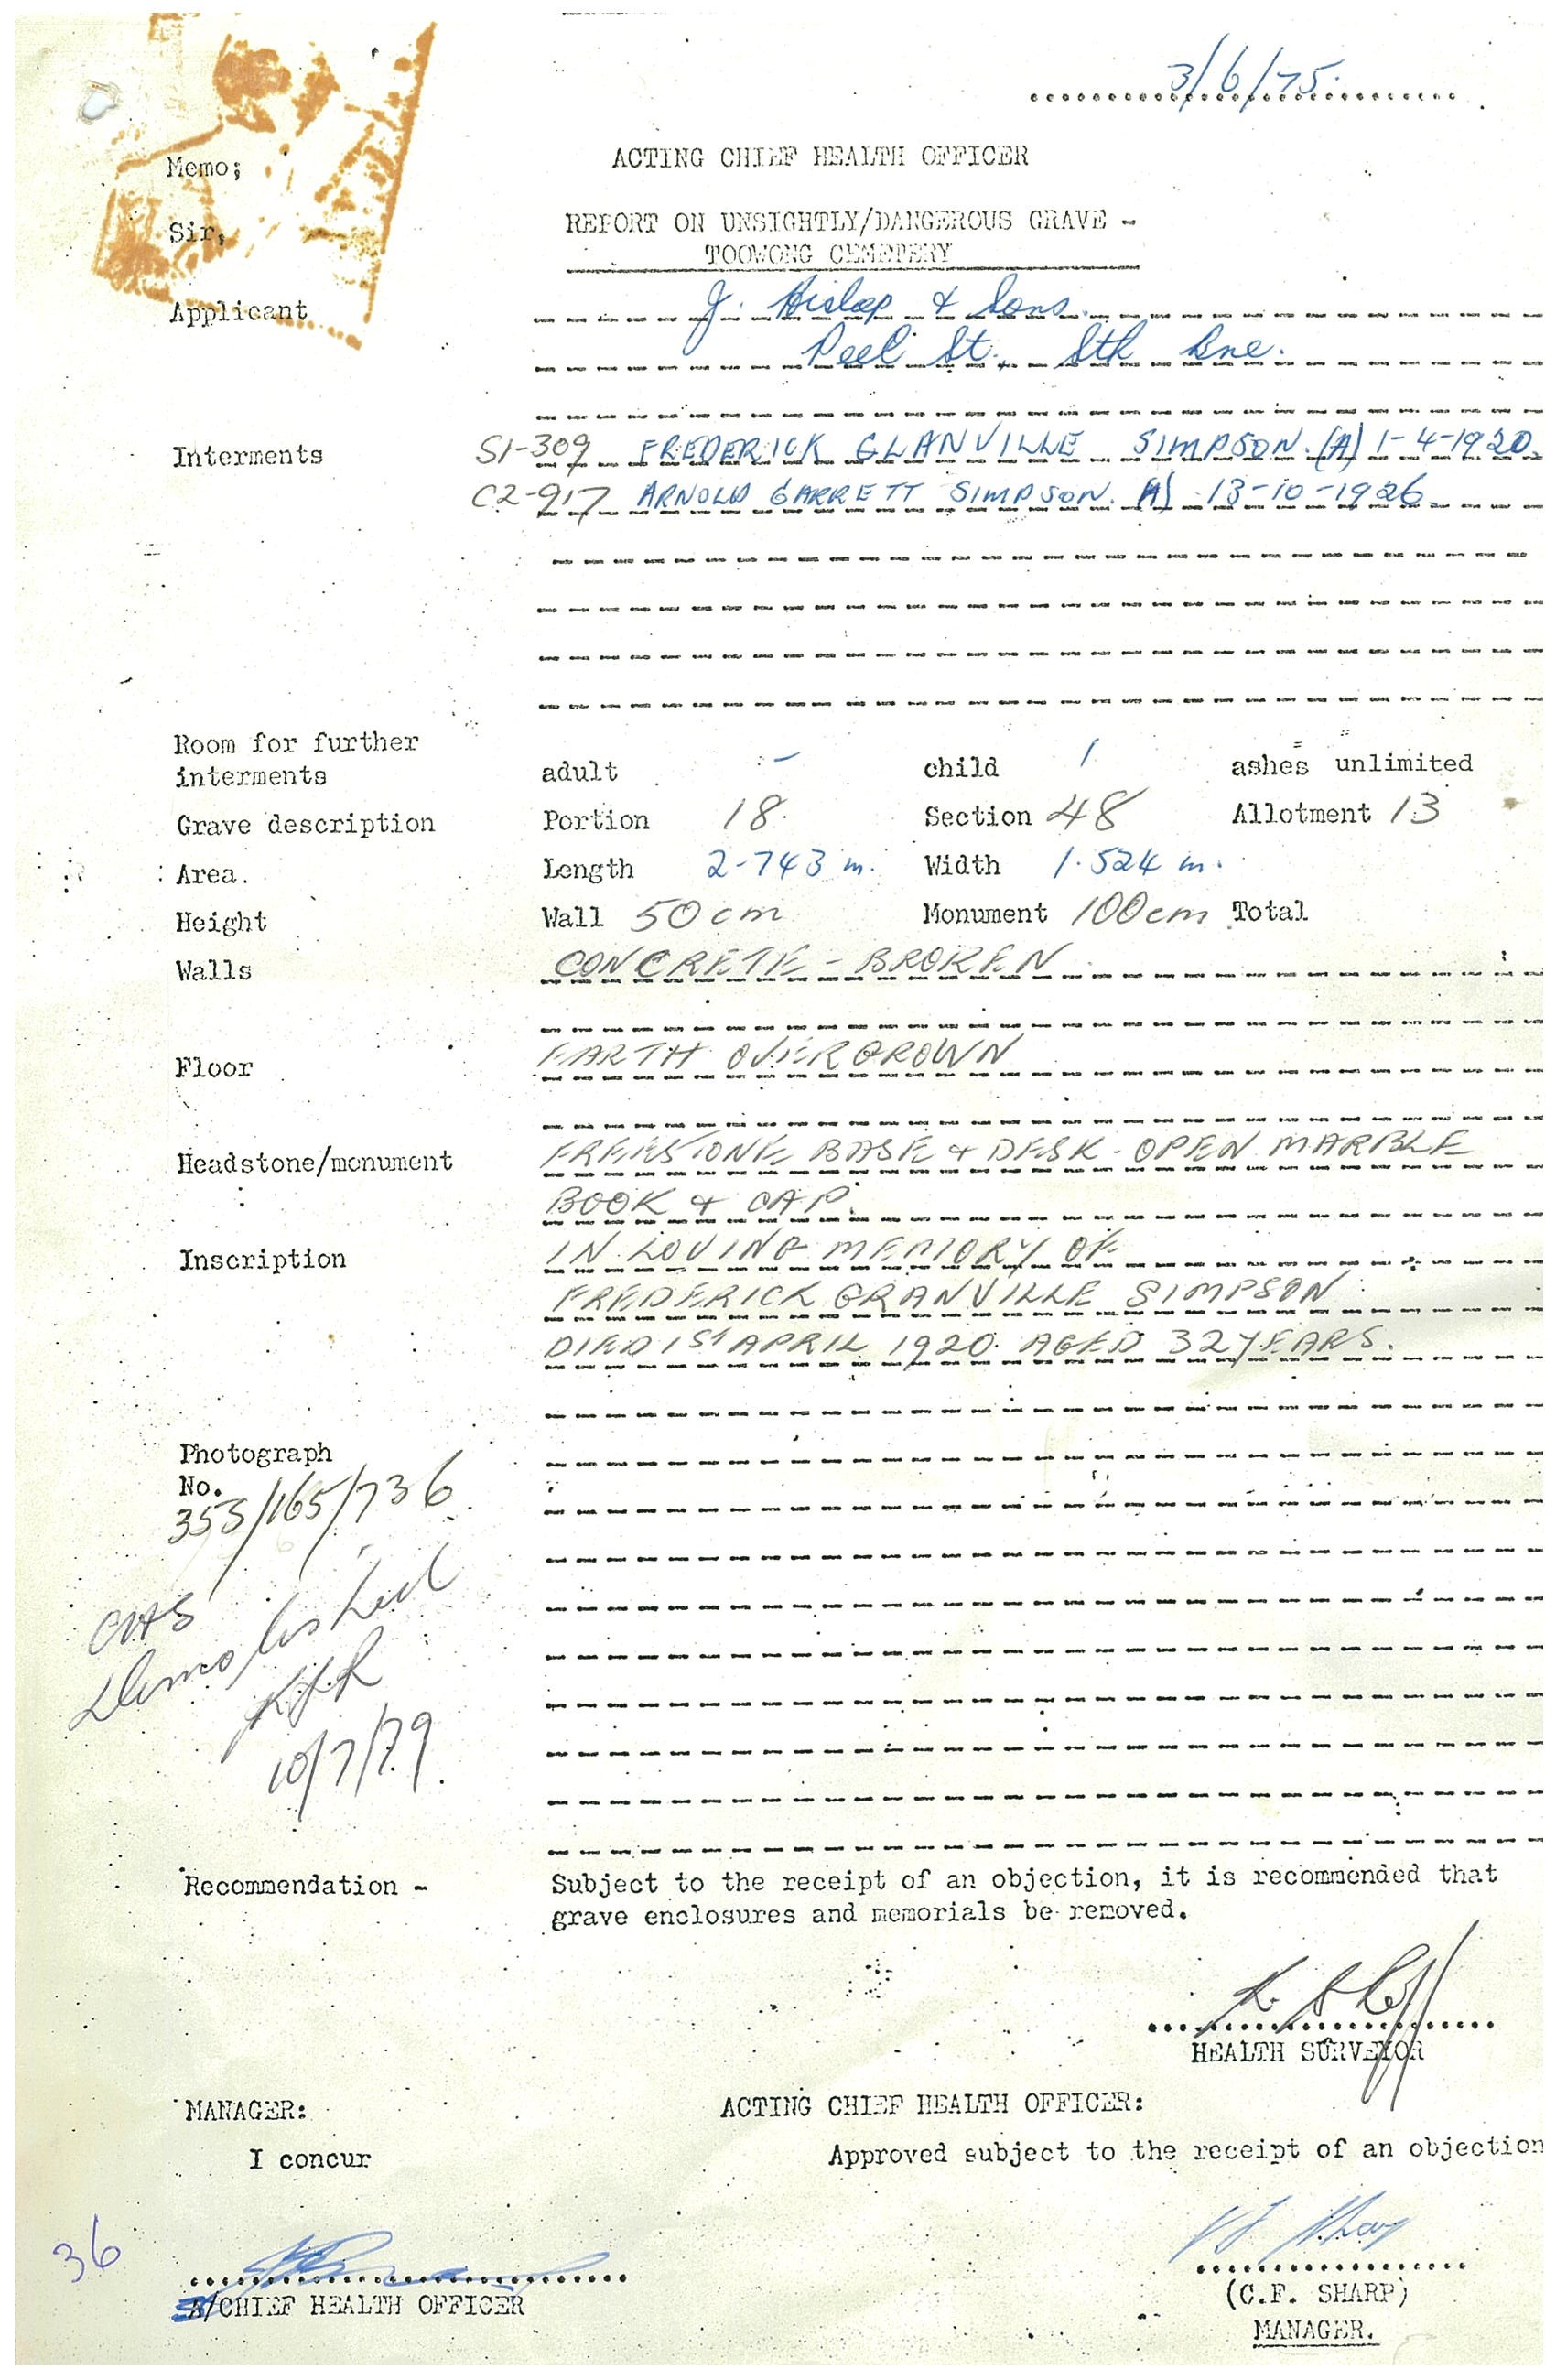 3/6/75.
ACTING CHIEF HEALTH OFFICER
Memo;
REPORT ON UNSIGHTLY/DANGEROUS GRAVE -
Sir,
TOOWONG CEMETERY
Applicant J. Hislop & Sons.
Peel St. Sth Bne.
Interments S1-309 FREDERICK GLANVILLE SIMPSON. (A) 1-4-1920.
C2-917 ARNOLD GARRETT SIMPSON. A) 13-10-1926
Room for further
interments adult - child 1 ashes unlimited
Grave description Portion 18. Section 48 Allotment 13
Area. Length 2-743 m. Width 1.524 m.
Height Wall 50cm Monument 100cm Total
Walls CONCRETE - BROKEN
Floor EARTH OVERGROWN
Headstone/monument FREESTONE BASE & DESK - OPEN MARBLE
BOOK & CAP.
Inscription IN LOVING MEMORY OF
FREDERICK GRANVILLE SIMPSON
DIED 1ST APRIL 1920. AGED 32 YEARS.
Photograph
No.
353/165/736
Demolished
10/7/79.
Recommendation - Subject to the receipt of an objection, it is recommended that
grave enclosures and memorials be removed.
HEALTH SURVEYOR
MANAGER: ACTING CHIEF HEALTH OFFICER:
I concur Approved subject to the receipt of an objection
36
A/CHIEF HEALTH OFFICER
(C.F. SHARP)
MANAGER.